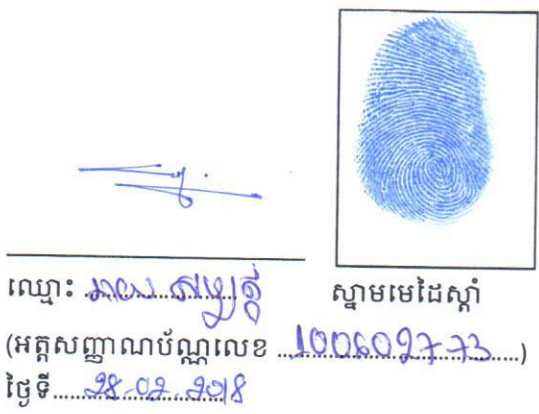 ឈ្មោះ
ស្នាមមេដៃស្តាំ
(អត្តសញ្ញាណប័ណ្ណលេខ 100602773)
ថ្ងៃទី 28-02-2018